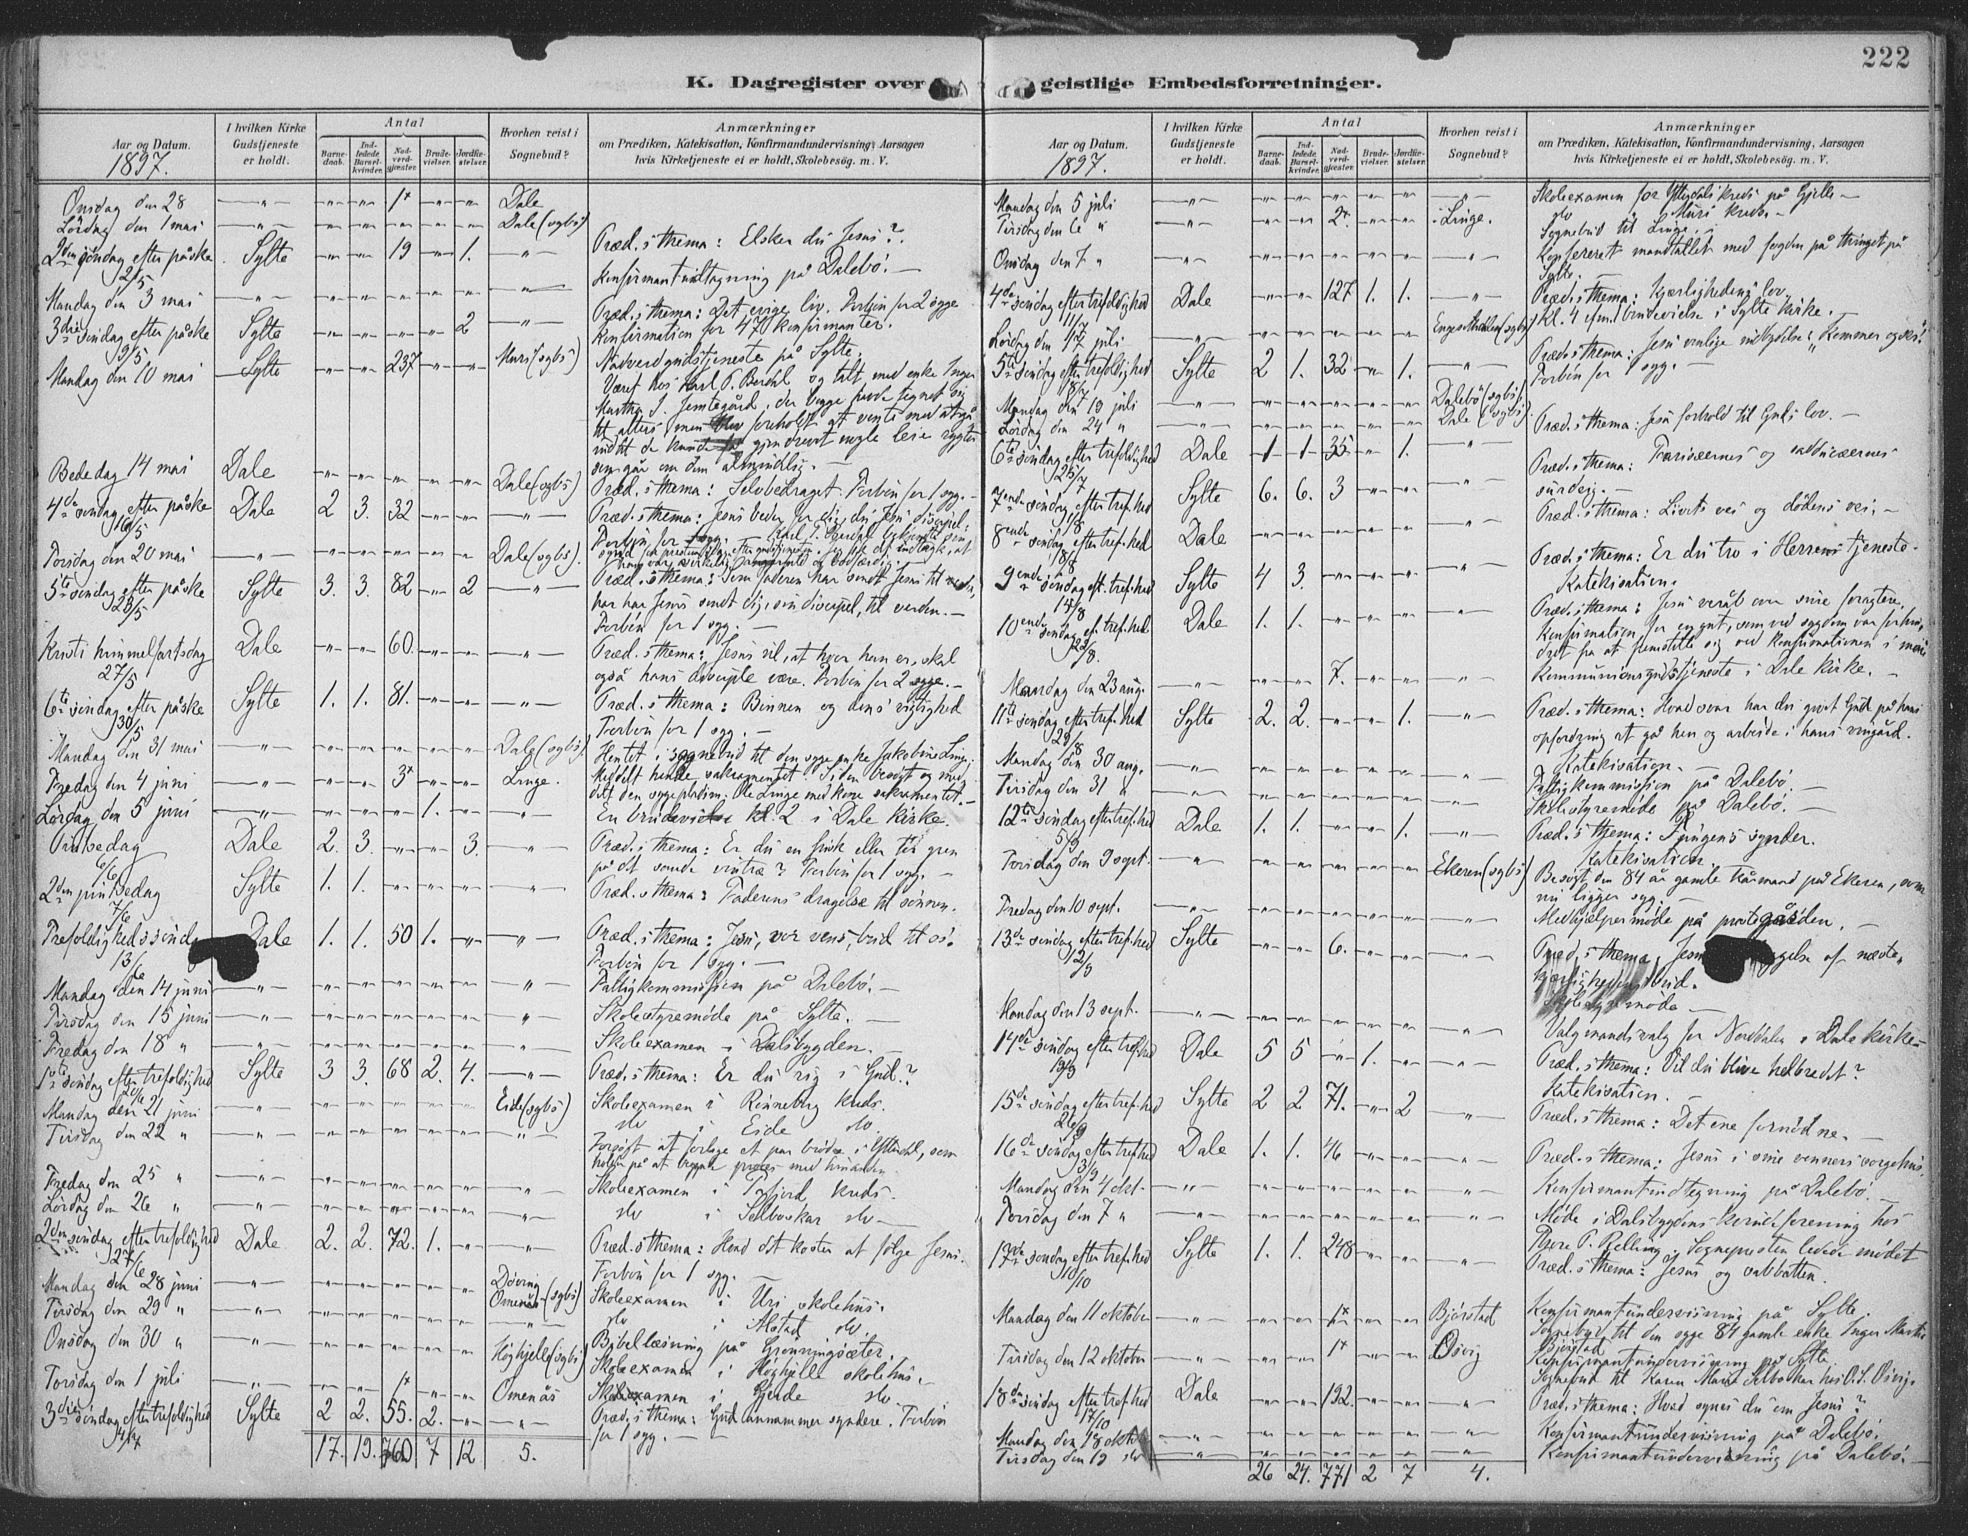 222
K. Dagregister over geistlige Embedsforretninger.
Aar og Datum.
1897.
I hvilken Kirke Gudstjeneste er holdt.
Antal
Barnedaab.
Indledede Barselkvinder.
Nadverdgjæster.
Brudevielser.
Jordfæstelser.
Hvorhen reist i Sognebud?
Anmærkninger
om Prædiken, Katekisation, Konfirmandundervisning, Aarsagen
hvis Kirketjeneste ei er holdt, Skolebesøg. m. V.
Onsdag den 28 — " — 1x Dale
Lördag den 1 mai — " — Dale (sgbs)
2den söndag efter påske 2/5 Sylte 19 1. Præd.s thema: Elsker du Jesus?
Mandag den 3 mai — " — Konfirmantudtagning på Dalebö. —
3die söndag efter påske 9/5 Sylte 2 Præd.s thema: Det evige liv. Forbön for 2 sygge
Konfirmation for 47 konfirmanter.
Mandag den 10 mai Sylte 237 Muri (sgbs) Nadverdgudstjeneste på Sylte.
Været hos Karl P. Berdal og talt med enke Inger
Martha J. Jemtegård, der begge havde tegnet sig
til alters, men
som går om dem almindelig. —
Bededag 14 mai Dale Dale (sgbs) Præd.s thema: Selvbedraget. Forbön for 1 syg. —
4de söndag efter påske 16/5 Dale 2 3. 32 Præd.s thema: Jesus beder for dig, du Jesu discipel.
Forbön for 1 syg. —
Torsdag den 20 mai Dale (sgbs).
5te söndag efter påske 23/5 Sylte 3. 3. 82 2 Præd.s thema: Som faderen har sendt Jesus til verden,
har han Jesus sendt dig, sin discipel, til verden. —
Forbön for 1 syg. —
Kristi himmelfartsdag 27/5 Dale 60. Præd.s thema: Jesus vil, at hvor han er, skal
også hans disciple være. Forbön for 2 sygge. —
6te söndag efter påske 30/5 Sylte 1. 1. 81. Præd.s thema: Bönnen og dens vigtighed
Forbön for 1 syg. —
Mandag den 31 mai — " — Dale (sgbs).
Fredag den 4 juni — " — 3x Linge. Hentet i sognebud til den syge enke Jakobine Linge;
Meddelt hende sakramentet.
Lördag den 5 juni — " — 1. En brudevielse kl. 2 i Dale kirke.
Pintsedag 6/6 Dale 2. 3. 3. Præd.s thema: Er du en frisk eller tör gren
på det sande vintræ? Forbön for 1 syg. —
2den pintsedag 7/6 Sylte 1. 1. Præd.s thema: Faderens dragelse til sönnen.
Trefoldighedssönd 13/6 Dale 1. 1. 50 1. Præd.s thema: Jesu, vor vens, bud til os.
Forbön for 1 syg. —
Mandag den 14 juni — " — Fattigkommission på Dalebö. —
Tirsdag den 15 juni — " — Skolestyremöde på Sylte. —
Fredag den 18 " — " — Skoleexamen i Dalsbygden. —
1ste söndag efter trefoldighed 20/6 Sylte 3 3. 68 2. 4. Præd.s thema: Er du rig i Gud?
Mandag den 21 juni — " — Eide (sgbs) Skoleexamen i Rönneberg kreds.
Tirsdag den 22 " — " — do i Eide do.
Forsögt at forlige et par brödre i Yttredal, som
holder på at begynde proces med hinanden.
Fredag den 25 " — " — Skoleexamen i Tafjord kreds.
Lördag den 26 " — " — do i Selboskar do —
2den söndag efter trefoldighed 27/6 Dale 2. 2. 72. 1. Præd.s thema: Hvad det koster at følge Jesus.
Forbön for 1 syg. —
Mandag den 28 juni — " — Döving Omenås (sgbs) Skoleexamen i Uri skolehus.
Tirsdag den 29 " — " — do i Alstad do.
Onsdag den 30 " — " — Höghjelle (sgbs) Bibellæsning på Grönningsæter.
Skoleexamen i Höghjelle skolehus. —
Torsdag den 1 juli — " — 1x Omenås Skoleexamen i Gjerde do
3die söndag efter trefoldighed 4/7 Sylte 2 2. 55. 2. Præd.s thema: Gud annammer syndere. Forbön
for 1 syg. —
17. 19. 760 7 12 5.
Aar og Datum.
1897.
I hvilken Kirke Gudstjeneste er holdt.
Antal
Barnedaab.
Indledede Barselkvinder.
Nadverdgjæster.
Brudevielser.
Jordfæstelser.
Hvorhen reist i Sognebud?
Anmærkninger
om Prædiken, Katekisation, Konfirmandundervisning, Aarsagen
hvis Kirketjeneste ei er holdt, Skolebesög. m. V.
Mandag den 5 juli — " — Skoleexamen for Yttredals kreds på Gjelle —
Tirsdag den 6 " — " — 2x Linge. do " Muri kreds. —
Sognebud til Linge. —
Onsdag den 7 " — " — Konfereret mandtallet med fogden på thinget på
Sylte. —
4de söndag efter trefoldighed 11/7 Dale 127 1. 1. Præd.s thema: Kjærlighedens lov.
Kl. 4 efm. brudevielse i Sylte kirke. —
Lördag den 17 juli (sgbs)
5te söndag efter trefoldighed 18/7 Sylte 2 1. 32 1. Præd.s thema: Jesu venlige indbydelse: "Kommer også!
Forbön for 1 syg. —
Mandag den 19 juli — " — Dalebö (sgbs).
Lördag den 24 " — " — Dale (sgbs).
Præd.s thema: Jesu forhold til Guds lov. —
6te söndag efter trefoldighed 25/7 Dale 1 1 35 1. Præd.s thema: Farisæernes og sadducæernes
surdeig. —
7ende söndag efter tref.hed 1/8 Sylte 6. 6. 3 Præd.s thema: Livets vei og dödens vei. —
8ende söndag efter tref.hed 8/8 Dale Præd.s thema: Er du tro i Herrens tjeneste.
Katekisation.
9ende söndag eft. tref.hed 14/8 Sylte 4 3. Præd.s thema: Jesu veråb over sine foragtere.
10ende söndag ef. tref.hed 22/8. Dale 1. 1. Konfirmation for en gut, som ved sygdom var forhindret
fra at fremstille sig ved konfirmationen i mai
Mandag den 23 aug. — " — 7. Kommunionsgudstjeneste i Dale kirke. —
11te söndag efter tref.hed 29/8 Sylte 2. 2. 1. Præd.s thema: Hvad svar har du givet Gud på hans
opfordring at gå hen og arbeide i hans vingård.
Katekisation. —
Mandag den 30 aug. — " — Fattigkommission på Dalebö. —
Tirsdag den 31 " — " — Skolestyremöde på Dalebö. —
12te söndag efter tref.hed 5/9 Dale 1. 1. 1. Præd.s thema: Tungens synder.
Katekisation.
Torsdag den 9 sept. — " — Ekeren (sgbs) Besögt den 84 år gamle kårmand på Ekeren, som
nu ligger syg. —
Fredag den 10 sept. — " — Medhjælpermöde på prestegården. —
13de söndag efter tref.hed 12/9 Sylte 6. Præd.s thema: Jesu
Skolestyremöde —
Mandag den 13 sept. — " — Valgmandsvalg for Norddalen i Dale kirke —
14de söndag efter tref.hed Dale 5 5 1. Præd.s thema: Vil du blive helbredet?
Katekisation. —
15de söndag efter tref.hed 26/9 Sylte 2 2 71. 2 Præd.s thema: Det ene fornödne. —
16de söndag efter tref.hed Dale 1. 1. 46 Præd.s thema: Jesus i sine venners sorgehus.
Mandag den 4 okt. — " — Konfirmantindtegning på Dalebö. —
Torsdag den 7 " — " — Möde i Dalsbygdens forening hos
P. Relling. Sognepresten ledede mödet
17de söndag efter tref.hed 10/10 Sylte 1. 1. 248 Præd.s thema: Jesus og sabbatten.
Mandag den 11 oktober 1x Bjørstad Konfirmantundervisning på Sylte.
Sognebud til den syge 84 gamle enke Inger Marthe
Bjørstad
Tirsdag den 12 oktober — " — 1x Osvig Konfirmantundervisning på Sylte.
Sognebud til Karen Marie Selboskar
18de söndag efter tref.hed 17/10 Dale 192. Præd.s thema: Hvad synes du om Jesus?
Mandag den 18 oktober — " — Konfirmantundervisning på Dalebö.
Tirsdag den 19 do — " — Konfirmantundervisning på Dalebö. —
26 24. 771 2 7 4.